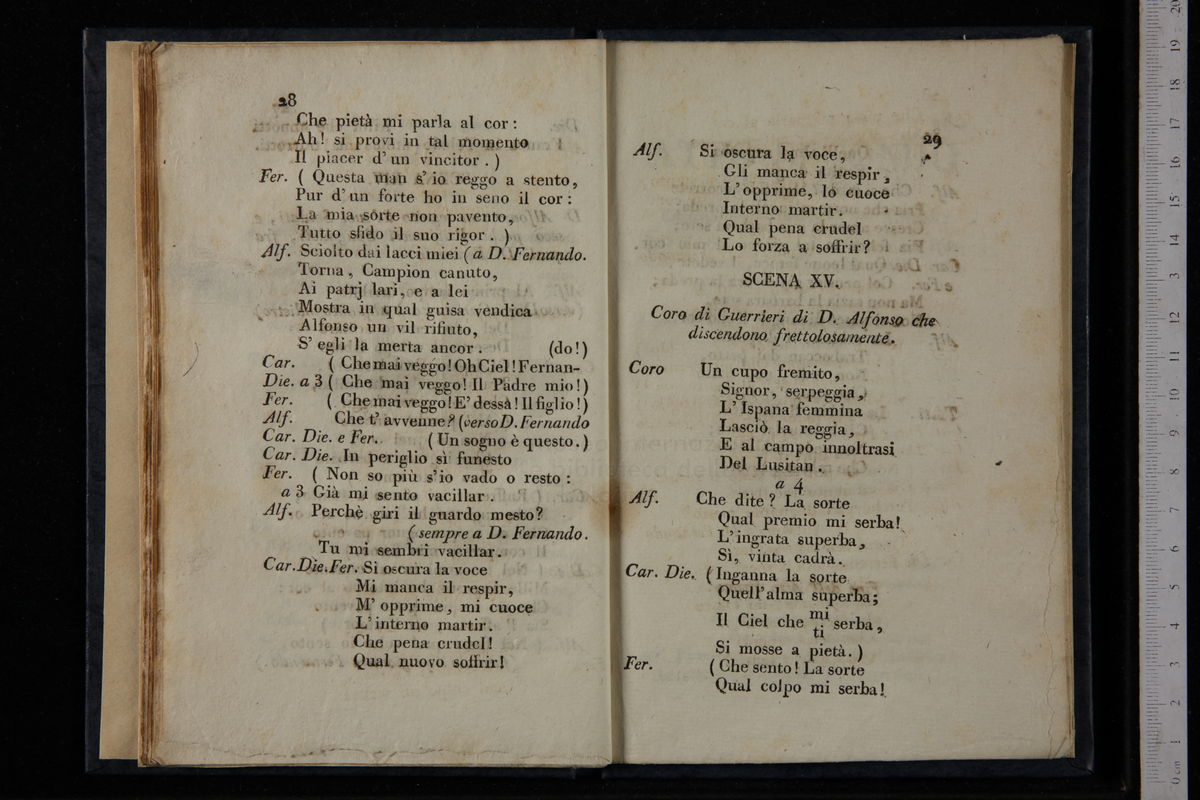 28
Che pietà mi parla al cor :
Ah! si provi in tal momento
Il piacer d' un vincitor . )
Fer. ( Questa man s' io reggo a stento,
Pur d' un forte ho in seno il cor :
La mia sorte non pavento,
Tutto sfido il suo rigor . )
Alf. Sciolto dai lacci miei ( a D. Fernando.
Torna , Campion canuto,
Ai patrj lari, e a lei
Mostra in qual guisa vendica
Alfonso un vil rifiuto,
S' egli la merta ancor . (do!)
Car. ( Che mai veggo! Oh Ciel! Fernan-
Die. a 3 ( Che mai veggo! Il Padre mio!)
Fer. ( Che mai veggo! E' dessa! Il figlio!)
Alf. Che t' avvenne? (verso D. Fernando
Car. Die. e Fer. ( Un sogno è questo.)
Car. Die. In periglio sì funesto
Fer. ( Non so più s'io vado o resto :
a 3 Già mi sento vacillar .
Alf. Perchè giri il guardo mesto?
( sempre a D. Fernando.
Tu mi sembri vacillar.
Car.Die.Fer. Si oscura la voce
Mi manca il respir,
M' opprime, mi cuoce
L' interno martir.
Che pena crudel!
Qual nuovo soffrir!
29
Alf. Si oscura la voce,
Gli manca il respir,
L' opprime, lo cuoce
Interno martir.
Qual pena crudel
Lo forza a soffrir?
SCENA XV.
Coro di Guerrieri di D. Alfonso che
discendono frettolosamente.
Coro Un cupo fremito,
Signor, serpeggia,
L' Ispana femmina
Lasciò la reggia,
E al campo innoltrasi
Del Lusitan.
a 4
Alf. Che dite? La sorte
Qual premio mi serba!
L' ingrata superba,
Sì, vinta cadrà.
Car. Die. (Inganna la sorte
Quell' alma superba;
Il Ciel che mi serba,
ti
Si mosse a pietà. )
Fer. ( Che sento! La sorte
Qual colpo mi serba!